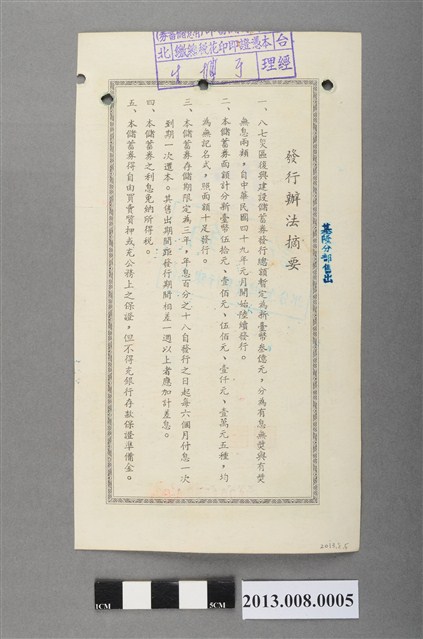 本憑證印花稅總繳
台北
經理
發行辦法摘要
基隆分部售出
一、八七災區復興建設儲蓄券發行總額暫定為新臺幣叁億元，分為有息無獎與有獎
無息兩類，自中華民國四十九年元月開始陸續發行。
二、本儲蓄券面額計分新臺幣伍拾元、壹佰元、伍佰元、壹仟元、壹萬元五種，均
為無記名式，照面額十足發行。
三、本儲蓄券存儲期限定為三年，年息百分之十八自發行之日起每六個月付息一次
到期一次還本。其售出期間距發行期間相差一週以上者應加計差息。
四、本儲蓄券之利息免納所得稅。
五、本儲蓄券得自由買賣質押或充公務上之保證，但不得充銀行存款保證準備金。
2013.8.5
1CM
5CM
2013.008.0005